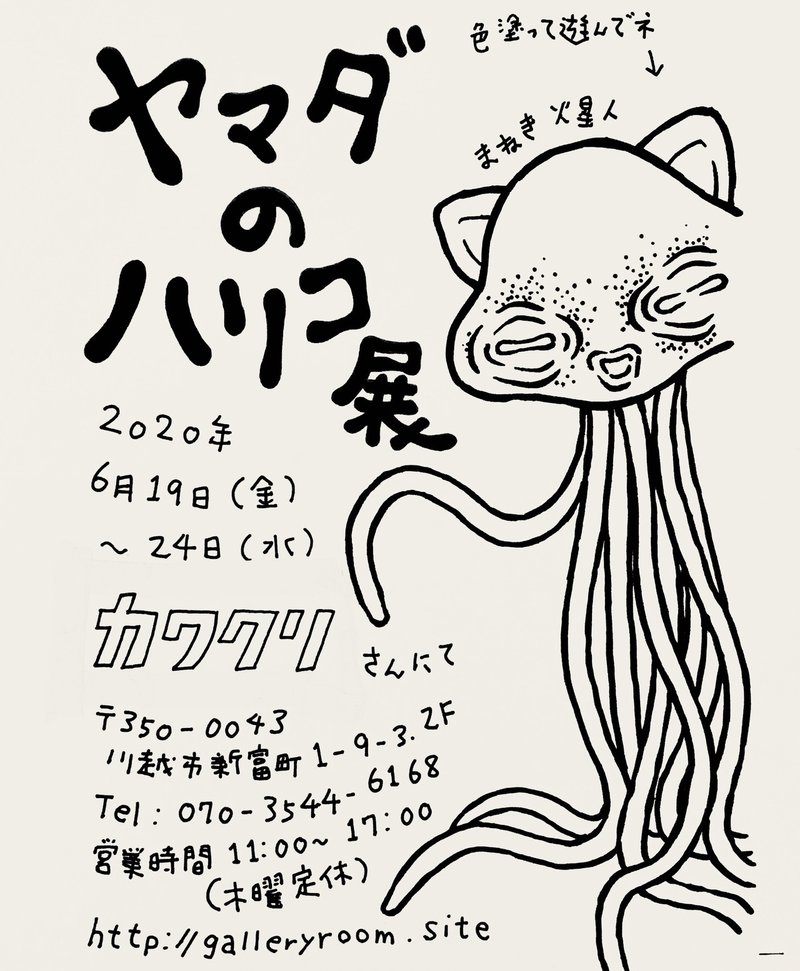 色塗って遊んでネ
↓
まねき火星人
ヤマダ
の
ハリコ
展
2020年
6月19日(金)
～24日(水)
カワクリ さんにて
〒350-0043
川越市新富町1-9-3.2F
Tel:070-3544-6168
営業時間 11:00～17:00
(木曜定休)
http://galleryroom.site